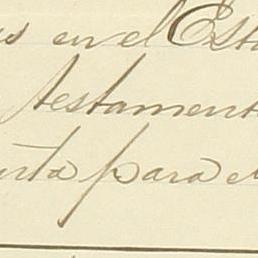 en el Est
testament
para e